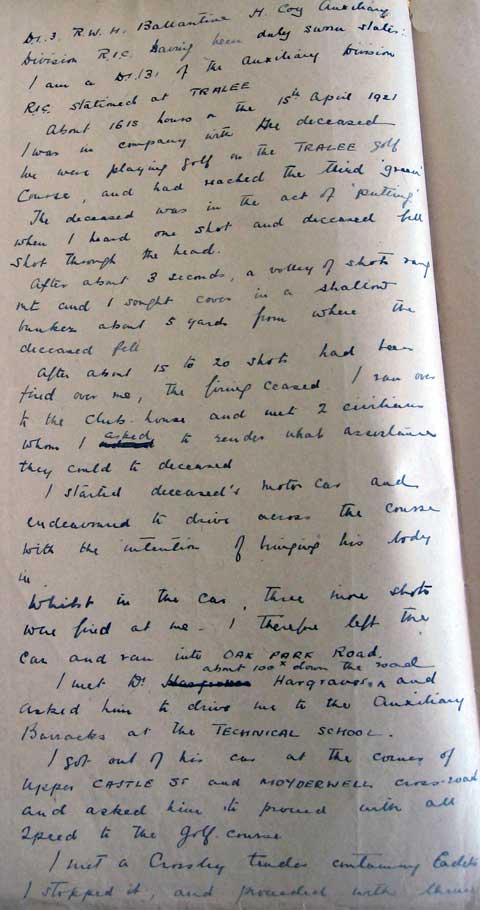 D.I.3. R.W.H. Ballantine H. Coy Auxiliary
Division R.I.C. Having been duly sworn states:
I am a D.I.(3) of the Auxiliary Division
R.I.C. stationed at TRALEE
About 1615 hours on the 15th April 1921
I was in company with the deceased
We were playing golf on the TRALEE Golf
Course, and had reached the third 'green'
The deceased was in the act of 'putting'
when I heard one shot and deceased fell
shot through the head.
After about 3 seconds, a volley of shots rang
out and I sought cover in a shallow
bunker about 5 yards from where the
deceased fell
After about 15 to 20 shots had been
fired over me, the firing ceased. I ran over
to the Club-house and met 2 civilians
whom I asked to render what assistance
they could to deceased
I started deceased's motor car and
endeavoured to drive across the course
with the intention of bringing his body
in
Whilst in the car, three more shots
were fired at me. I therefore left the
car and ran into OAK PARK ROAD.
about 100x down the road
I met Dr Hargraves and
asked him to drive me to the Auxiliary
Barracks at the TECHNICAL SCHOOL.
I got out of his car at the corner of
Upper CASTLE ST and MOYDERWELL cross-road
and asked him to proceed with all
speed to the golf-course
I met a Crossley tender containing Cadets
I stopped it, and proceeded with